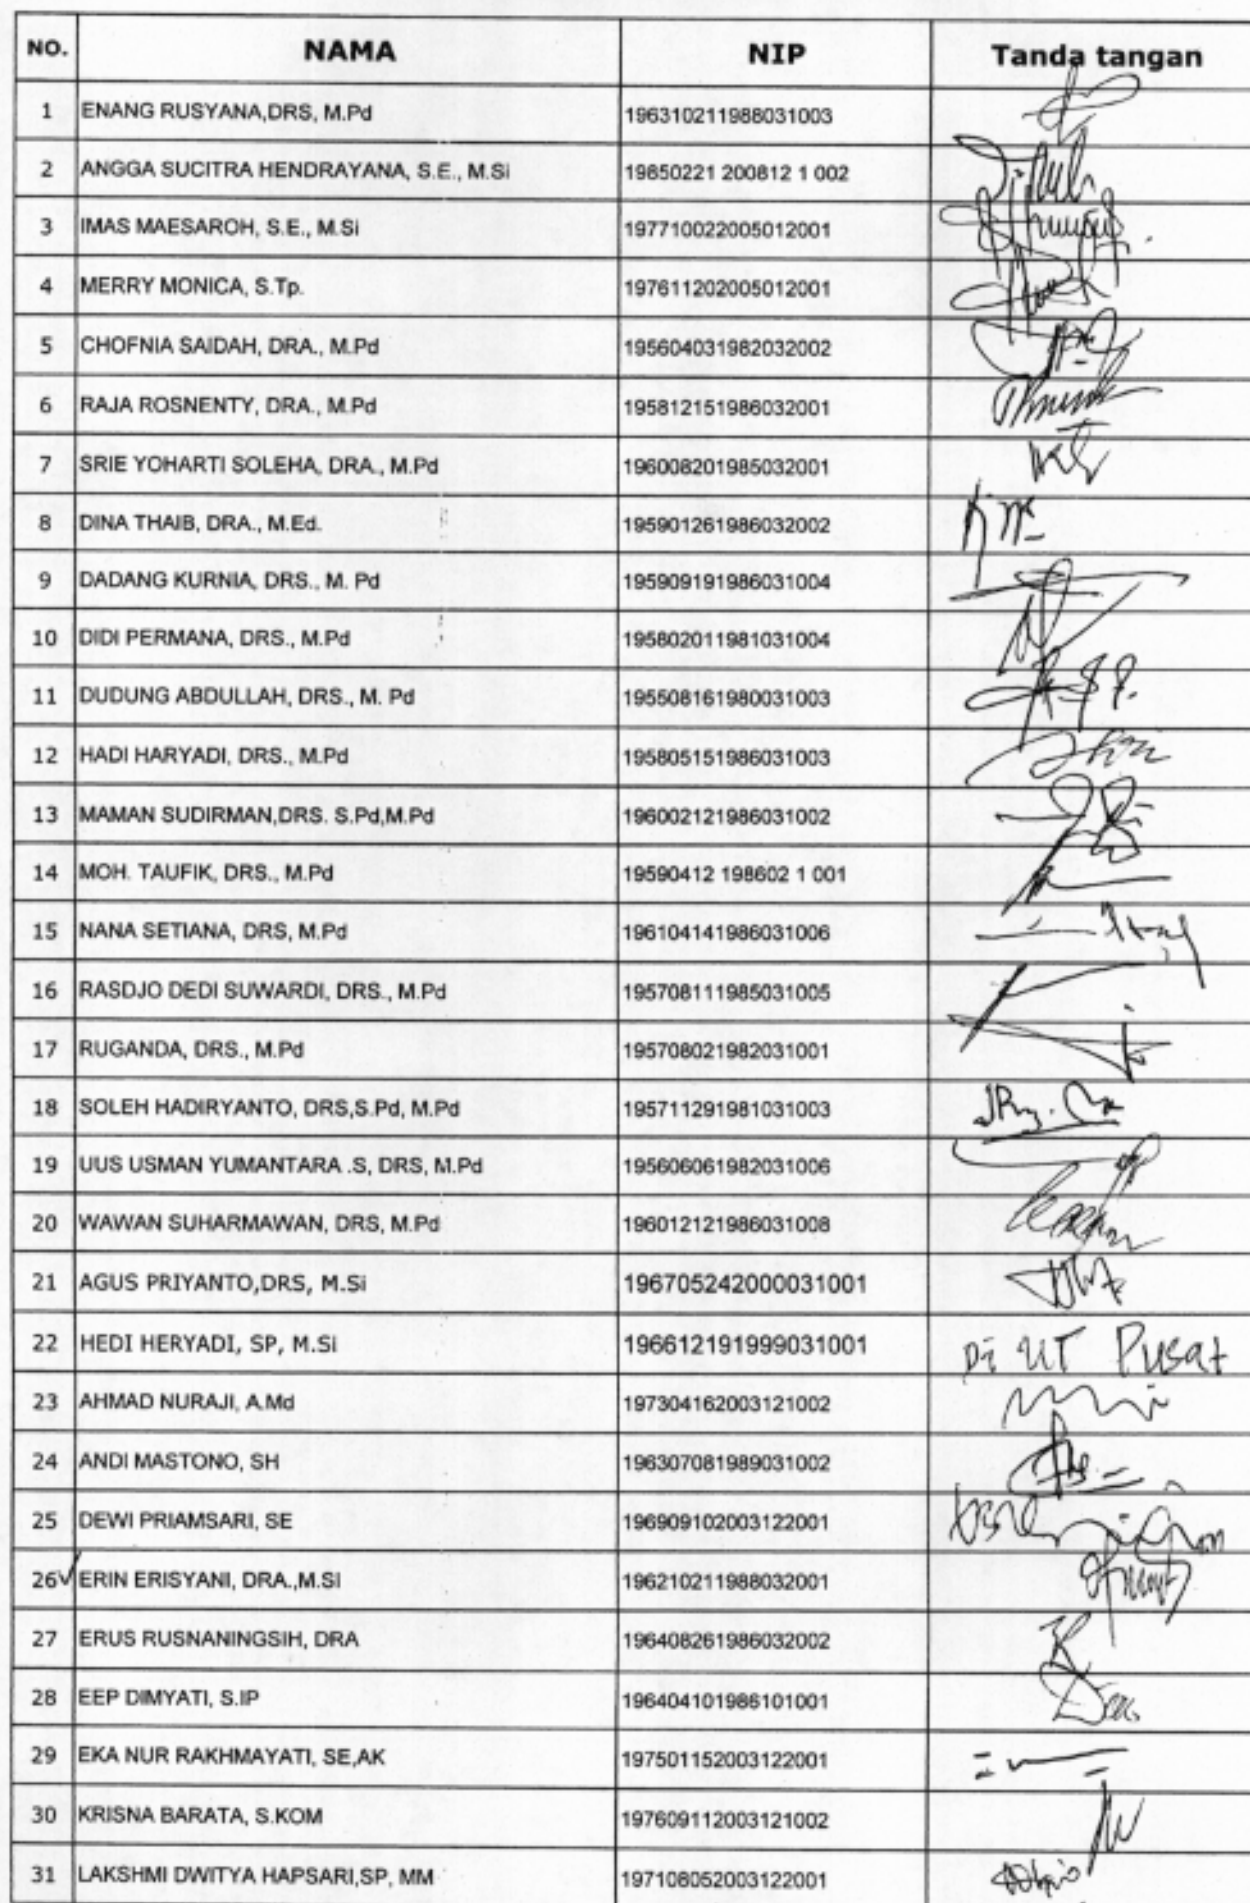 NO. NAMA NIP Tanda tangan
1 ENANG RUSYANA,DRS, M.Pd 196310211988031003
2 ANGGA SUCITRA HENDRAYANA, S.E., M.Si 19850221 200812 1 002
3 IMAS MAESAROH, S.E., M.Si 197710022005012001
4 MERRY MONICA, S.Tp. 197611202005012001
5 CHOFNIA SAIDAH, DRA., M.Pd 195604031982032002
6 RAJA ROSNENTY, DRA., M.Pd 195812151986032001
7 SRIE YOHARTI SOLEHA, DRA., M.Pd 196008201985032001
8 DINA THAIB, DRA., M.Ed. 195901261986032002
9 DADANG KURNIA, DRS., M. Pd 195909191986031004
10 DIDI PERMANA, DRS., M.Pd 195802011981031004
11 DUDUNG ABDULLAH, DRS., M. Pd 195508161980031003
12 HADI HARYADI, DRS., M.Pd 195805151986031003
13 MAMAN SUDIRMAN,DRS. S.Pd,M.Pd 196002121986031002
14 MOH. TAUFIK, DRS., M.Pd 19590412 198602 1 001
15 NANA SETIANA, DRS, M.Pd 196104141986031006
16 RASDJO DEDI SUWARDI, DRS., M.Pd 195708111985031005
17 RUGANDA, DRS., M.Pd 195708021982031001
18 SOLEH HADIRYANTO, DRS,S.Pd, M.Pd 195711291981031003
19 UUS USMAN YUMANTARA .S, DRS, M.Pd 195606061982031006
20 WAWAN SUHARMAWAN, DRS, M.Pd 196012121986031008
21 AGUS PRIYANTO,DRS, M.Si 196705242000031001
22 HEDI HERYADI, SP, M.Si 196612191999031001 Di UT Pusat
23 AHMAD NURAJI, A.Md 197304162003121002
24 ANDI MASTONO, SH 196307081989031002
25 DEWI PRIAMSARI, SE 196909102003122001
26 ERIN ERISYANI, DRA.,M.Si 196210211988032001
27 ERUS RUSNANINGSIH, DRA 196408261986032002
28 EEP DIMYATI, S.IP 196404101986101001
29 EKA NUR RAKHMAYATI, SE,AK 197501152003122001
30 KRISNA BARATA, S.KOM 197609112003121002
31 LAKSHMI DWITYA HAPSARI,SP, MM 197108052003122001